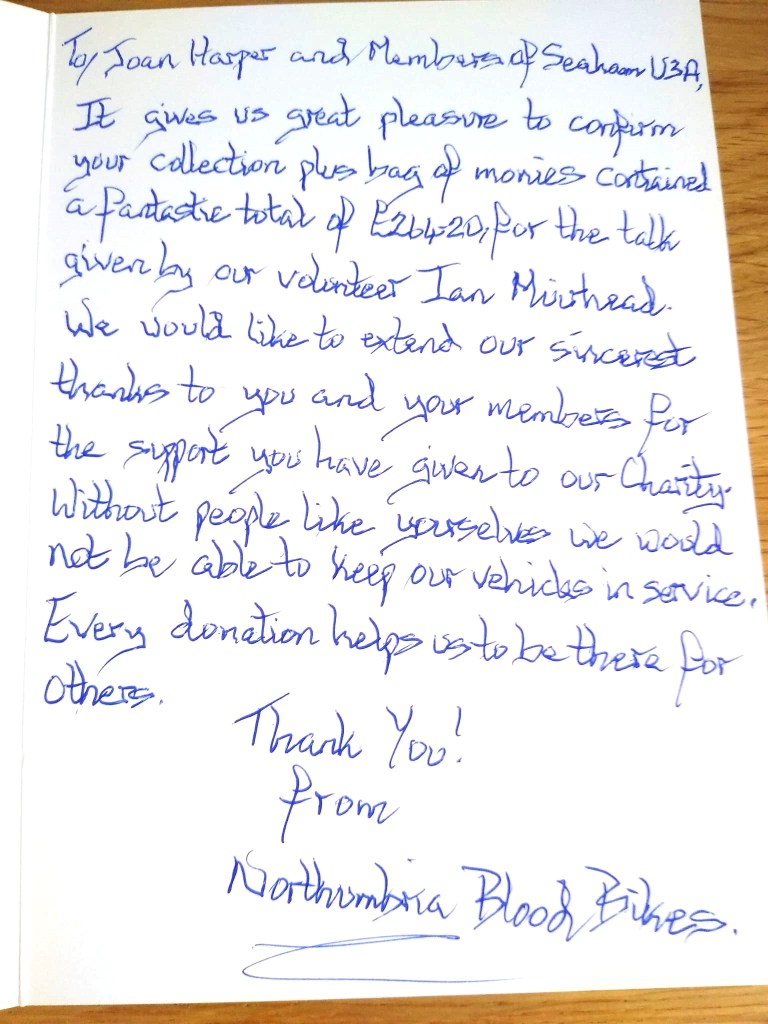 To/ Joan Harper and Members of Seaham U3A,
It gives us great pleasure to confirm
your collection plus bag of monies contained
a fantastic total of £264=20, for the talk
given by our volunteer Ian Muirhead.
We would like to extend our sincerest
thanks to you and your members for
the support you have given to our Charity.
Without people like yourselves we would
not be able to keep our vehicles in service.
Every donation helps us to be there for
others.
Thank You!
from
Northumbria Blood Bikes.